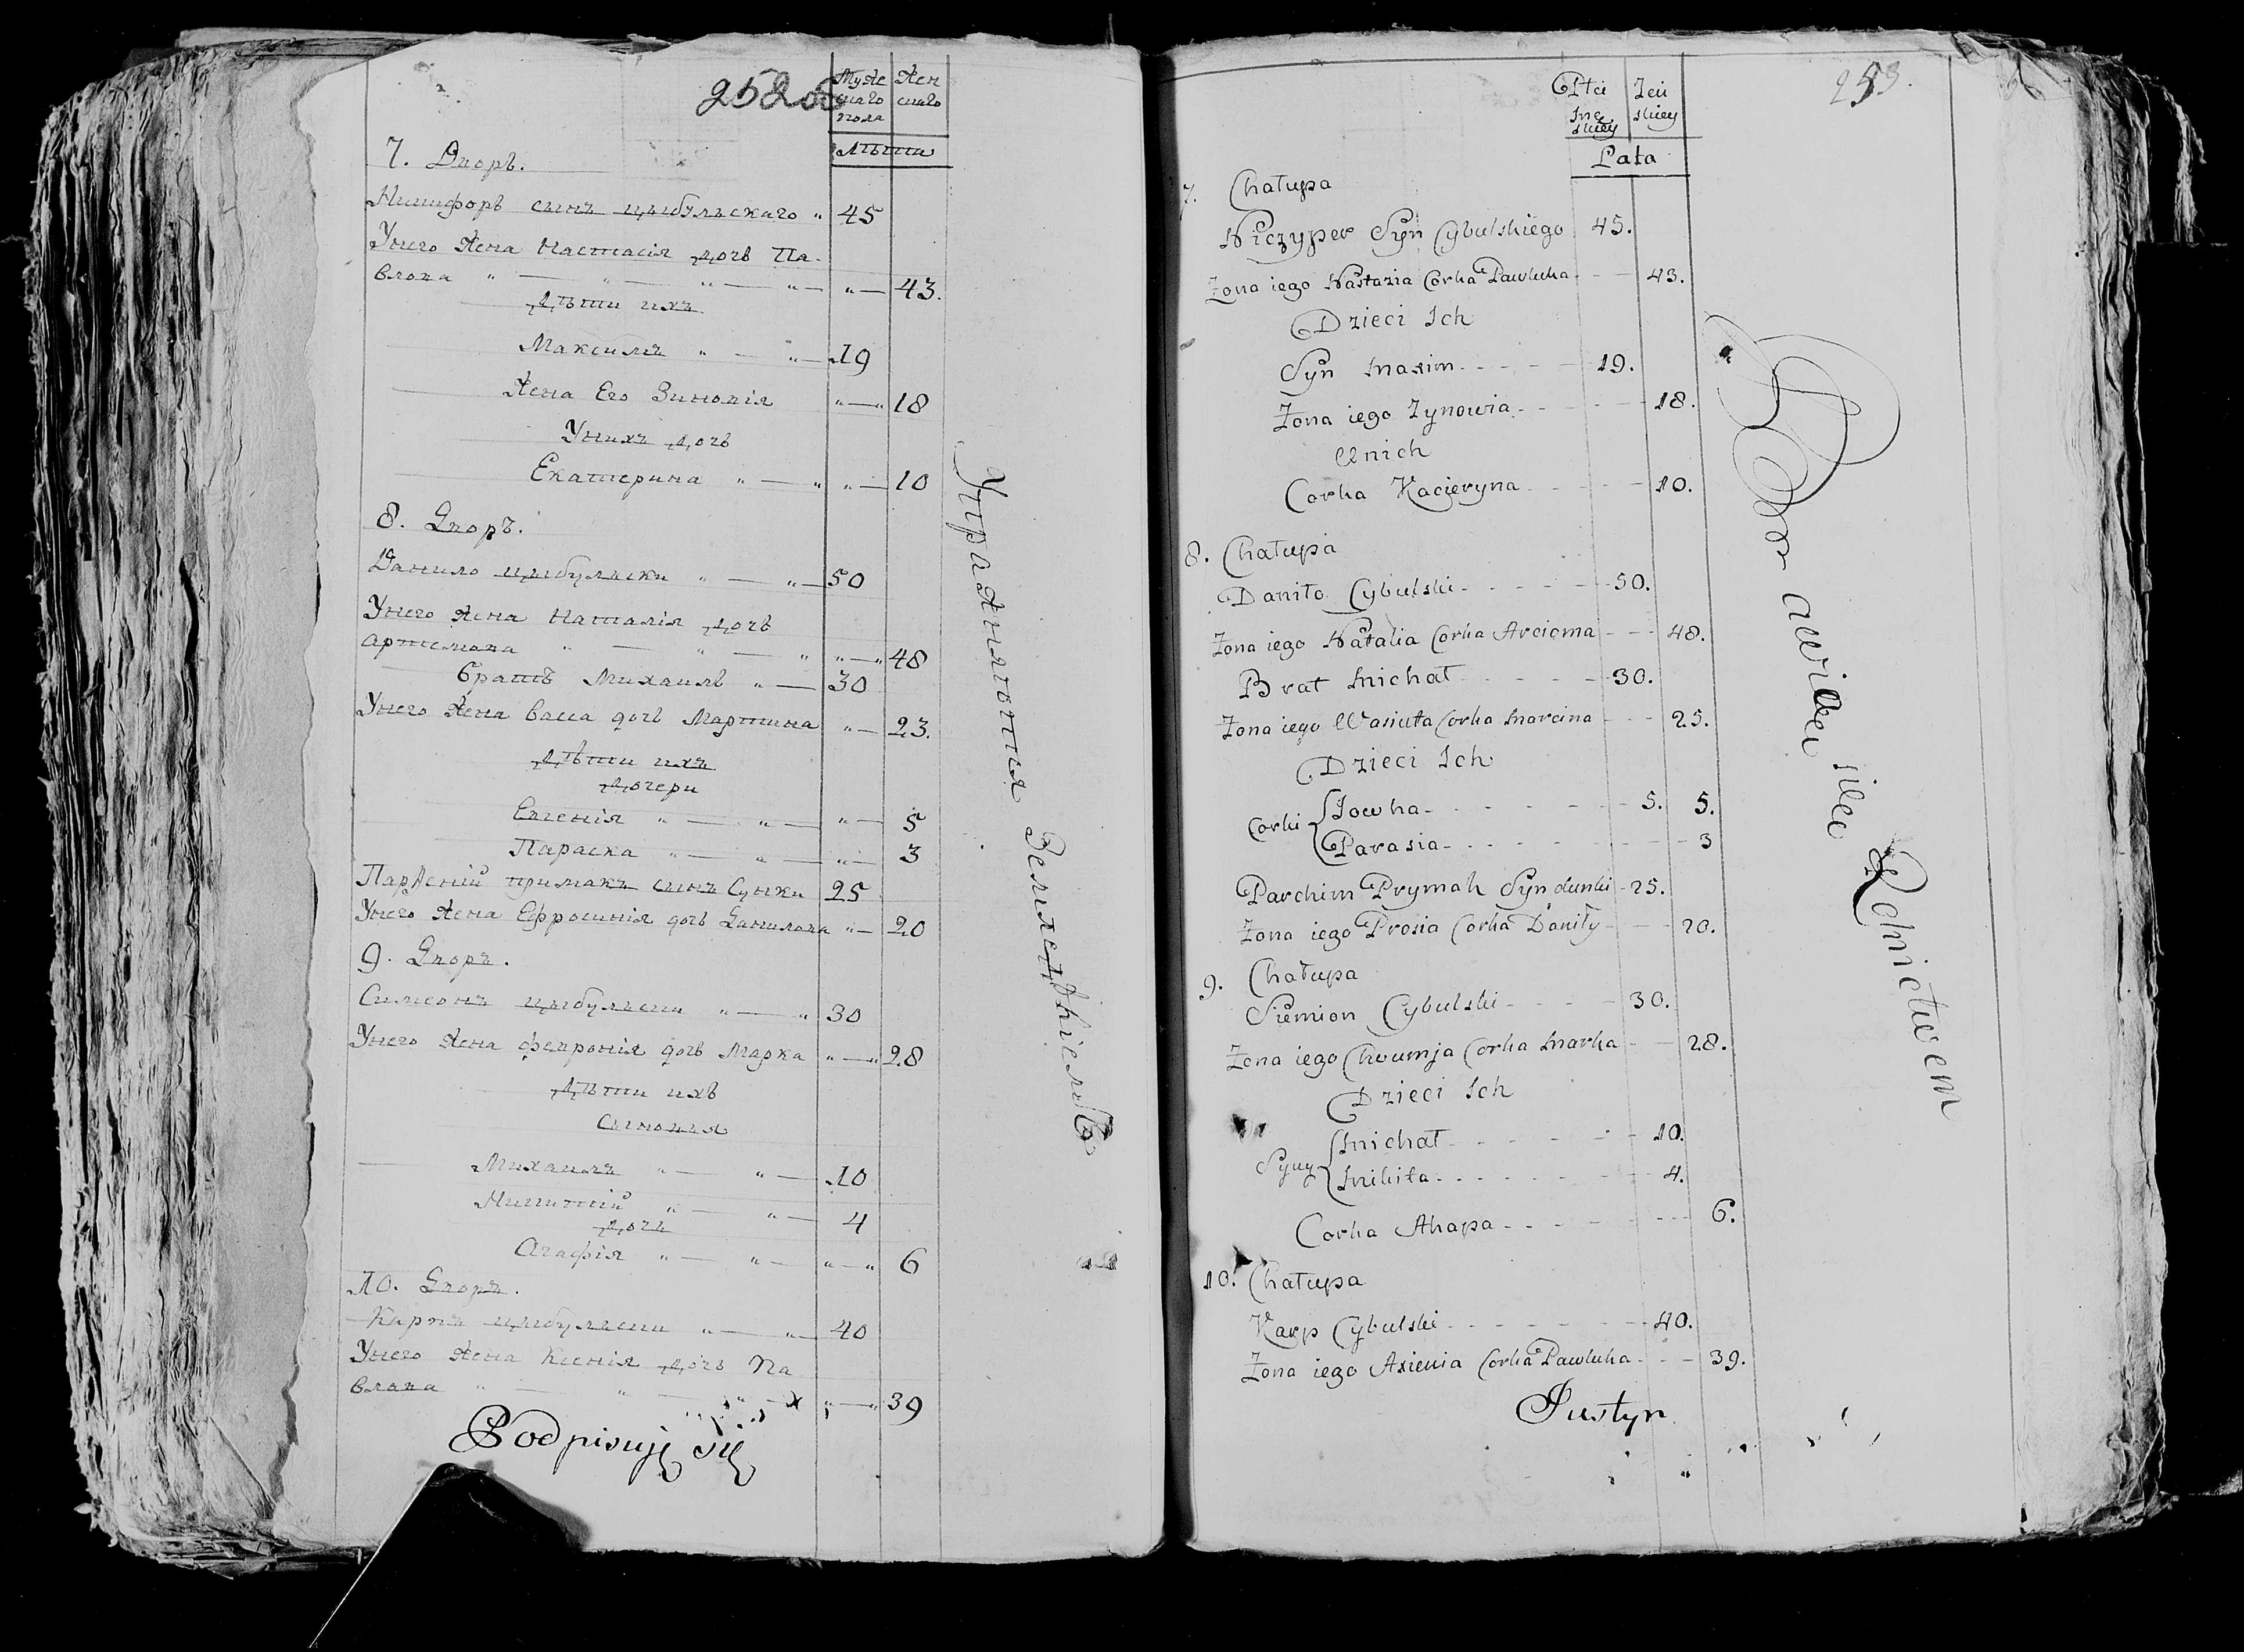 252 об
Мужескаго пола
Женскаго
Лѣты
7. Дворъ.
Никифоръ сынъ Цыбульскаго " 45
Унего жена Настасія дочь Павлова " — " — " — " — 43.
Дѣти ихъ
Максимъ " — " — 19
Жена Его Зиновія " — " 18
Унихъ дочь
Екатерина " — " " — 10
8. Дворъ.
Данило Цыбульски " — " — 50
Унего жена Наталія дочь
Артемова " — " — " " — " 48
братъ Михаилъ " — 30
Унего жена Васса дочь Мартина " — 23.
Дѣти ихъ
Дочери
Евгенія " — " — " — 5
Параска " — " — " — 3
Парѳеній примакъ сынъ Сунки 25
Унего жена Ефросинія дочь Данилова " — 20
9. Дворъ.
Симеонъ Цыбульски " — " 30
Унего жена Февронія дочь Марка " — " 28
Дѣти ихъ
Сыновья
Михаилъ " — " — 10
Никитій " — " — 4
Дочь
Агафія " — " — " — " 6
10. Дворъ.
Карпъ Цыбульски " — " — 40
Унего жена Ксенія дочь Павлова " — " — " — " 39
Podpisuję się
Упражняются Земледѣліемъ
253.
Płci męskiey
Żeńskiey
Lata
7. Chałupa
Niczyper Syn Cybulskiego 45.
Żona iego Nastazia Corka Pawluka - - - 43.
Dzieci Ich
Syn Maxim - - - - - 19.
Żona iego Zynowia - - - - - 18.
U nich
Corka Kacieryna - - - - - 10.
8. Chałupa
Daniło Cybulski - - - - - 50.
Żona iego Natalia Corka Arcioma - - - 48.
Brat Michał - - - - - 30.
Żona iego Wasiuta Corka Marcina - - - 25.
Dzieci Ich
Corki Jowha - - - - - - 5. 5.
Parasia - - - - - - 3
Parchim Prymak Syn Sunki - 25.
Żona iego Prosia Corka Daniły - - - 20.
9. Chałupa
Siemion Cybulski - - - - - 30.
Żona iego Chwumja Corka Marka - - 28.
Dzieci Ich
Syny Michał - - - - - - 10.
Mikita - - - - - - 4.
Corka Ahapa - - - - - - 6.
10. Chałupa
Karp Cybulski - - - - - - 40.
Żona iego Axienia Corka Pawluka - - - 39.
Justyn
Rolnictwem